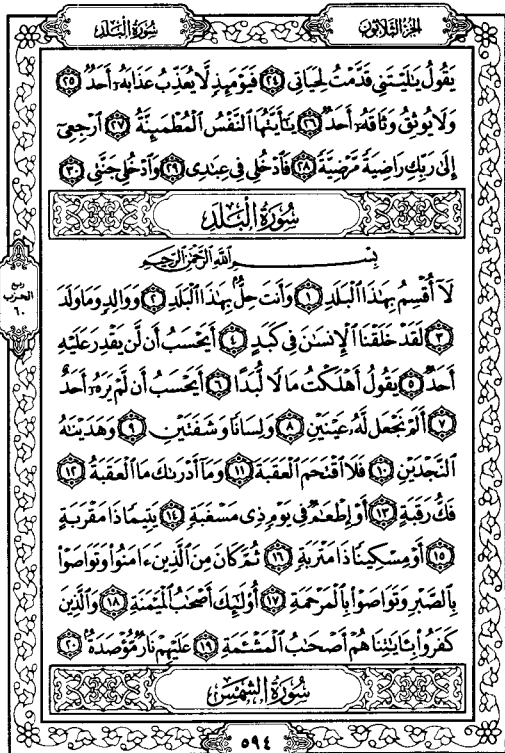 سُورَةُ البَلَدِ الجُزْءُ الثَّلَاثُونَ
يَقُولُ يَٰلَيْتَنِي قَدَّمْتُ لِحَيَاتِي ٢٤ فَيَوْمَئِذٍ لَّا يُعَذِّبُ عَذَابَهُۥٓ أَحَدٌ ٢٥
وَلَا يُوثِقُ وَثَاقَهُۥٓ أَحَدٌ ٢٦ يَٰٓأَيَّتُهَا ٱلنَّفْسُ ٱلْمُطْمَئِنَّةُ ٢٧ ٱرْجِعِىٓ
إِلَىٰ رَبِّكِ رَاضِيَةً مَّرْضِيَّةً ٢٨ فَٱدْخُلِى فِى عِبَٰدِى ٢٩ وَٱدْخُلِى جَنَّتِى ٣٠
سُورَةُ الْبَلَدِ
بِسْمِ ٱللَّهِ ٱلرَّحْمَٰنِ ٱلرَّحِيمِ
لَآ أُقْسِمُ بِهَٰذَا ٱلْبَلَدِ ١ وَأَنتَ حِلٌّۢ بِهَٰذَا ٱلْبَلَدِ ٢ وَوَالِدٍ وَمَا وَلَدَ
٣ لَقَدْ خَلَقْنَا ٱلْإِنسَٰنَ فِى كَبَدٍ ٤ أَيَحْسَبُ أَن لَّن يَقْدِرَ عَلَيْهِ
أَحَدٌ ٥ يَقُولُ أَهْلَكْتُ مَالًا لُّبَدًا ٦ أَيَحْسَبُ أَن لَّمْ يَرَهُۥٓ أَحَدٌ
٧ أَلَمْ نَجْعَل لَّهُۥ عَيْنَيْنِ ٨ وَلِسَانًا وَشَفَتَيْنِ ٩ وَهَدَيْنَٰهُ
ٱلنَّجْدَيْنِ ١٠ فَلَا ٱقْتَحَمَ ٱلْعَقَبَةَ ١١ وَمَآ أَدْرَىٰكَ مَا ٱلْعَقَبَةُ ١٢
فَكُّ رَقَبَةٍ ١٣ أَوْ إِطْعَٰمٌ فِى يَوْمٍ ذِى مَسْغَبَةٍ ١٤ يَتِيمًا ذَا مَقْرَبَةٍ
١٥ أَوْ مِسْكِينًا ذَا مَتْرَبَةٍ ١٦ ثُمَّ كَانَ مِنَ ٱلَّذِينَ ءَامَنُوا۟ وَتَوَاصَوْا۟
بِٱلصَّبْرِ وَتَوَاصَوْا۟ بِٱلْمَرْحَمَةِ ١٧ أُو۟لَٰٓئِكَ أَصْحَٰبُ ٱلْمَيْمَنَةِ ١٨ وَٱلَّذِينَ
كَفَرُوا۟ بِـَٔايَٰتِنَا هُمْ أَصْحَٰبُ ٱلْمَشْـَٔمَةِ ١٩ عَلَيْهِمْ نَارٌ مُّؤْصَدَةٌۢ ٢٠
سُورَةُ الشَّمْسِ
ربع
الحزب
٦٠
٥٩٤